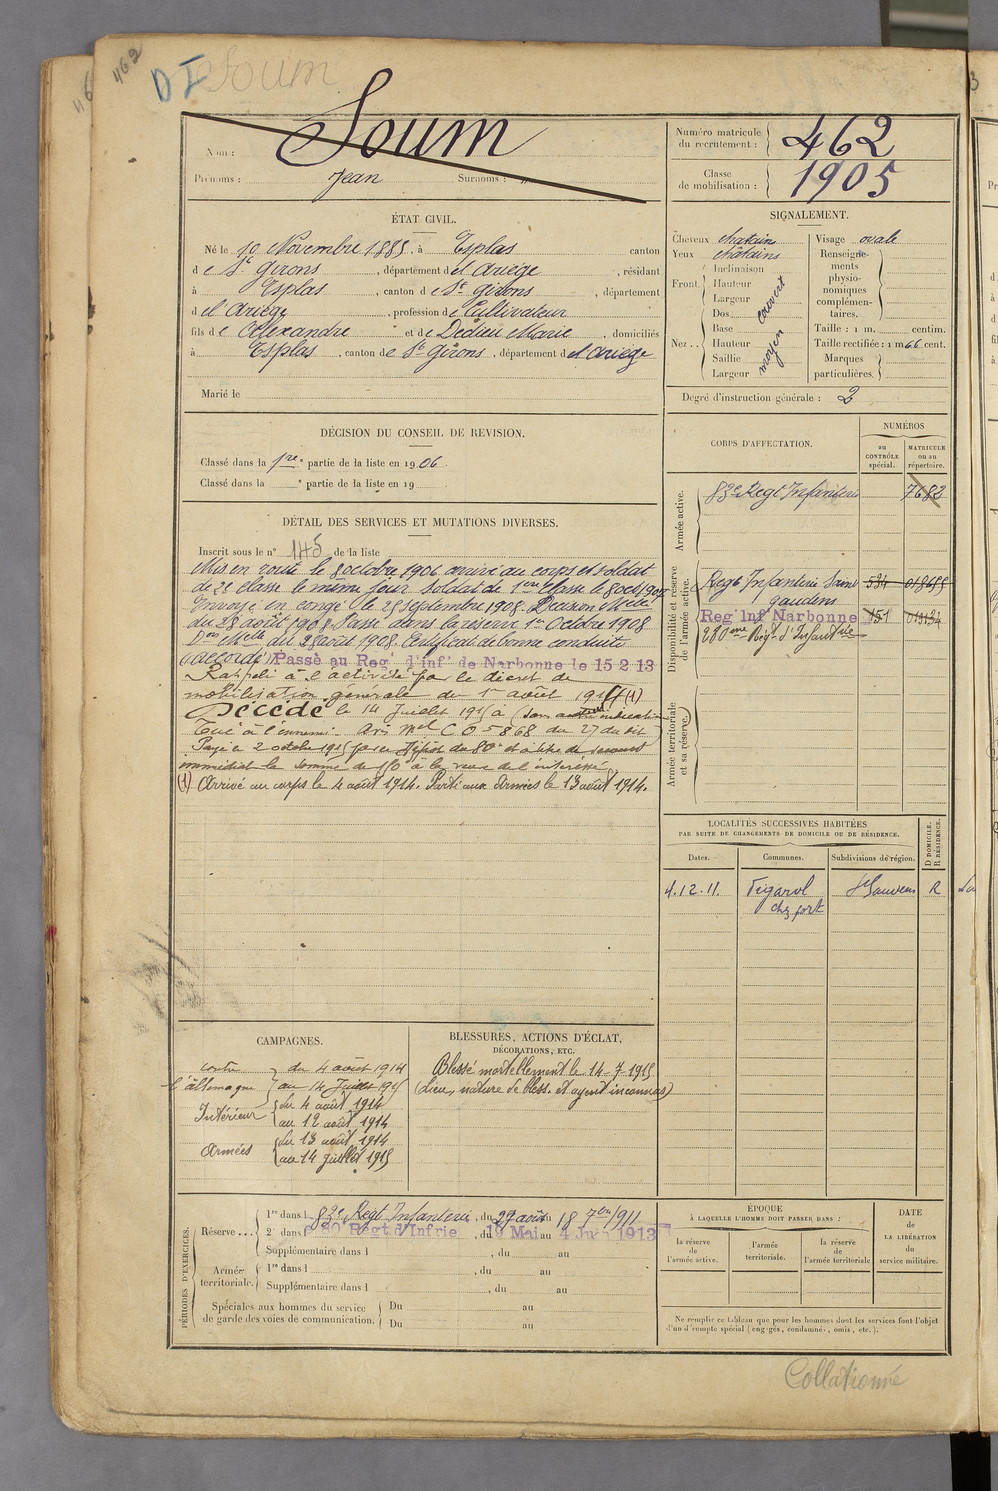 462
D I Soum
Nom : Soum
Prénoms : Jean Surnoms : "
Numéro matricule du recrutement : 462
Classe de mobilisation : 1905
ÉTAT CIVIL.
Né le 10 Novembre 1885, à Esplas canton
de St Girons, département de l'Ariège, résidant
à Esplas, canton de St Girons, département
de l'Ariège, profession de Cultivateur
fils de Alexandre et de Dedieu Marie, domiciliés
à Esplas, canton de St Girons, département de l'Ariège
Marié le
SIGNALEMENT.
Cheveux chatains
Yeux châtains
Front. Inclinaison
Hauteur
Largeur
couvert
Nez .. Dos
Base
Hauteur
Saillie
Largeur
moyen
Visage ovale
Renseignements physionomiques complémentaires.
Taille : 1 m. centim.
Taille rectifiée : 1 m 66 cent.
Marques particulières.
Degré d'instruction générale : 2
DÉCISION DU CONSEIL DE REVISION.
Classé dans la 1re partie de la liste en 1906
Classé dans la e partie de la liste en 19
DÉTAIL DES SERVICES ET MUTATIONS DIVERSES.
Inscrit sous le n° 145 de la liste
Mis en route le 8 octobre 1906 arrivé au corps et soldat
de 2e classe le même jour Soldat de 1ere classe le 8 oct 1907
Envoyé en congé le 25 septembre 1908. Decision Melle
du 28 août 1908. Passé dans la réserve 1er Octobre 1908
Don Melle du 28 août 1908. Certificat de bonne conduite
(accordé) Passé au Reg' d'inf' de Narbonne le 15 2 13
Rappelé à l'activité par le décret de
mobilisation générale du 1er août 1914 (1)
Décédé le 14 Juillet 1915 à (sans autre indication
Tué à l'ennemi. Avis Mel C O 5868 du 27 du dit
Payé le 2 octobre 1915 par le Dépôt du 80e et à titre de secours
immédiat la somme de 150 à la veuve de l'intéressé
(1) Arrivé au corps le 4 août 1914. Parti aux Armées le 13 août 1914.
CORPS D'AFFECTATION.
NUMÉROS
au CONTRÔLE spécial.
MATRICULE ou au répertoire.
Armée active.
83e Regt Infanterie 7682
Disponibilité et réserve de l'armée active.
Regt Infanterie Saint gaudens 534
Reg' Inf' Narbonne 151 013134
280eme Régt d'Infanterie
Armée territoriale et sa réserve.
LOCALITÉS SUCCESSIVES HABITÉES
PAR SUITE DE CHANGEMENTS DE DOMICILE OU DE RÉSIDENCE.
Dates. Communes. Subdivisions de région. D DOMICILE. R RÉSIDENCE.
4.12.11. Figarol R
chez fort
CAMPAGNES.
contre l'allemagne du 4 août 1914
au 14 Juillet 1915
Intérieur du 4 août 1914
au 12 août 1914
Armées du 13 août 1914
au 14 juillet 1915
BLESSURES, ACTIONS D'ÉCLAT,
DÉCORATIONS, ETC.
Blessé mortellement le 14-7-1915
(Lieu, nature de bless. et agent inconnus)
PÉRIODES D'EXERCICES.
Réserve ... 1re dans l 83e Regt Infanterie, du 27 août au 18 7bre 1911
2e dans l 80 Régt d'Infrie, du 19 Mai au 4 Juin 1913
Supplémentaire dans l , du au
Armée territoriale. 1re dans l , du au
Supplémentaire dans l , du au
Spéciales aux hommes du service de garde des voies de communication. Du au
Du au
ÉPOQUE
À LAQUELLE L'HOMME DOIT PASSER DANS :
la réserve de l'armée active.
l'armée territoriale.
la réserve de l'armée territoriale
DATE DE LA LIBÉRATION du service militaire.
Ne remplir ce tableau que pour les hommes dont les services font l'objet
d'un décompte spécial (engagés, condamnés, omis, etc.).
Collationné